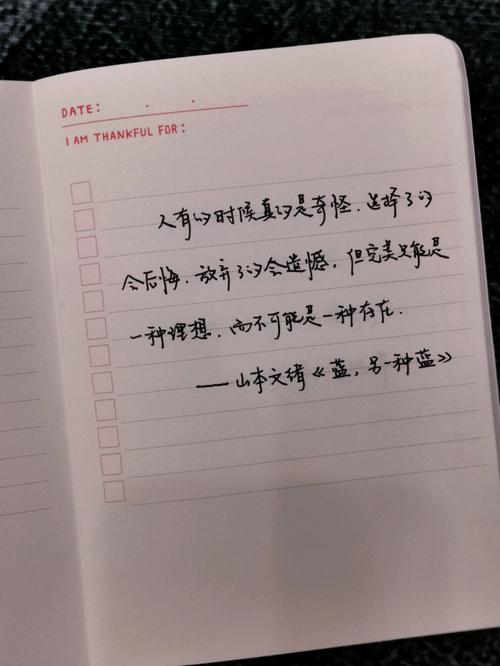 DATE: . .
I AM THANKFUL FOR:
人有的时候真的是奇怪.选择了的
会后悔.放弃了的会遗憾.但完美只能是
一种理想.而不可能是一种存在.
——山本文绪《蓝,另一种蓝》